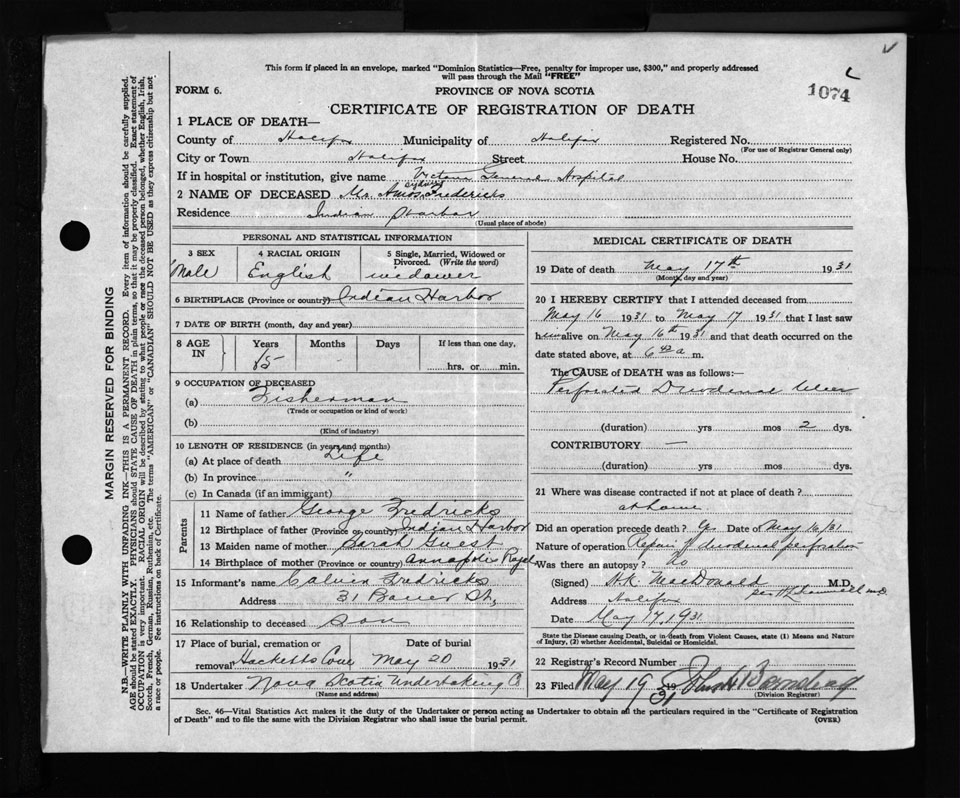 This form if placed in an envelope, marked "Dominion Statistics—Free, penalty for improper use, $300," and properly addressed
will pass through the Mail "FREE"
FORM 6. PROVINCE OF NOVA SCOTIA 1074
CERTIFICATE OF REGISTRATION OF DEATH
1 PLACE OF DEATH—
County of Halifax Municipality of Halifax Registered No.
(For use of Registrar General only)
City or Town Halifax Street House No.
If in hospital or institution, give name Victoria General Hospital
2 NAME OF DECEASED Mr. Amos Sidney Fredericks
Residence Indian Harbor
(Usual place of abode)
PERSONAL AND STATISTICAL INFORMATION
3 SEX 4 RACIAL ORIGIN 5 Single, Married, Widowed or
Divorced. (Write the word)
Male English widower
6 BIRTHPLACE (Province or country) Indian Harbor
7 DATE OF BIRTH (month, day and year)
8 AGE IN Years Months Days If less than one day,
hrs. or min.
9 OCCUPATION OF DECEASED
(a) Fisherman
(Trade or occupation or kind of work)
(b)
(Kind of industry)
10 LENGTH OF RESIDENCE (in years and months)
(a) At place of death Life
(b) In province "
(c) In Canada (if an immigrant)
Parents
11 Name of father George Fredricks
12 Birthplace of father (Province or country) Indian Harbor
13 Maiden name of mother Sarah Guest
14 Birthplace of mother (Province or country) Annapolis Royal
15 Informant's name Calvin Fredricks
Address 31 Bauer St,
16 Relationship to deceased Son
17 Place of burial, cremation or Date of burial
removal Hacketts Cove May 20 1931
18 Undertaker Nova Scotia Undertaking C
(Name and address)
MEDICAL CERTIFICATE OF DEATH
19 Date of death May 17th 1931
(Month, day and year)
20 I HEREBY CERTIFY that I attended deceased from
May 16 1931 to May 17 1931 that I last saw
him alive on May 16th 1931 and that death occurred on the
date stated above, at 6 a m.
The CAUSE of DEATH was as follows:—
Perforated Duodenal Ulcer
(duration) yrs mos 2 dys.
CONTRIBUTORY —
(duration) yrs mos dys.
21 Where was disease contracted if not at place of death?
at home
Did an operation precede death? Yes Date of May 16/31
Nature of operation Repair of duodenal perforation
Was there an autopsy? no
(Signed) H.K. MacDonald M.D.
Address Halifax
Date May 17, 1931
State the Disease causing Death, or in death from Violent Causes, state (1) Means and Nature
of Injury, (2) whether Accidental, Suicidal or Homicidal.
22 Registrar's Record Number
23 Filed May 19 1931
(Division Registrar)
Sec. 46—Vital Statistics Act makes it the duty of the Undertaker or person acting as Undertaker to obtain all the particulars required in the "Certificate of Registration
of Death" and to file the same with the Division Registrar who shall issue the burial permit. (OVER)
MARGIN RESERVED FOR BINDING
N.B.—WRITE PLAINLY WITH UNFADING INK—THIS IS A PERMANENT RECORD. Every item of information should be carefully supplied.
AGE should be stated EXACTLY. PHYSICIANS should STATE CAUSE OF DEATH in plain terms, so that it may be properly classified. Exact statement of
OCCUPATION is very important. RACIAL ORIGIN will be described by stating to what people or race the deceased person belonged, whether English, Irish,
Scotch, French, German, Russian, Ruthenian, etc. The terms "AMERICAN" or "CANADIAN" SHOULD NOT BE USED as they express citizenship but not
a race or people. See instructions on back of Certificate.